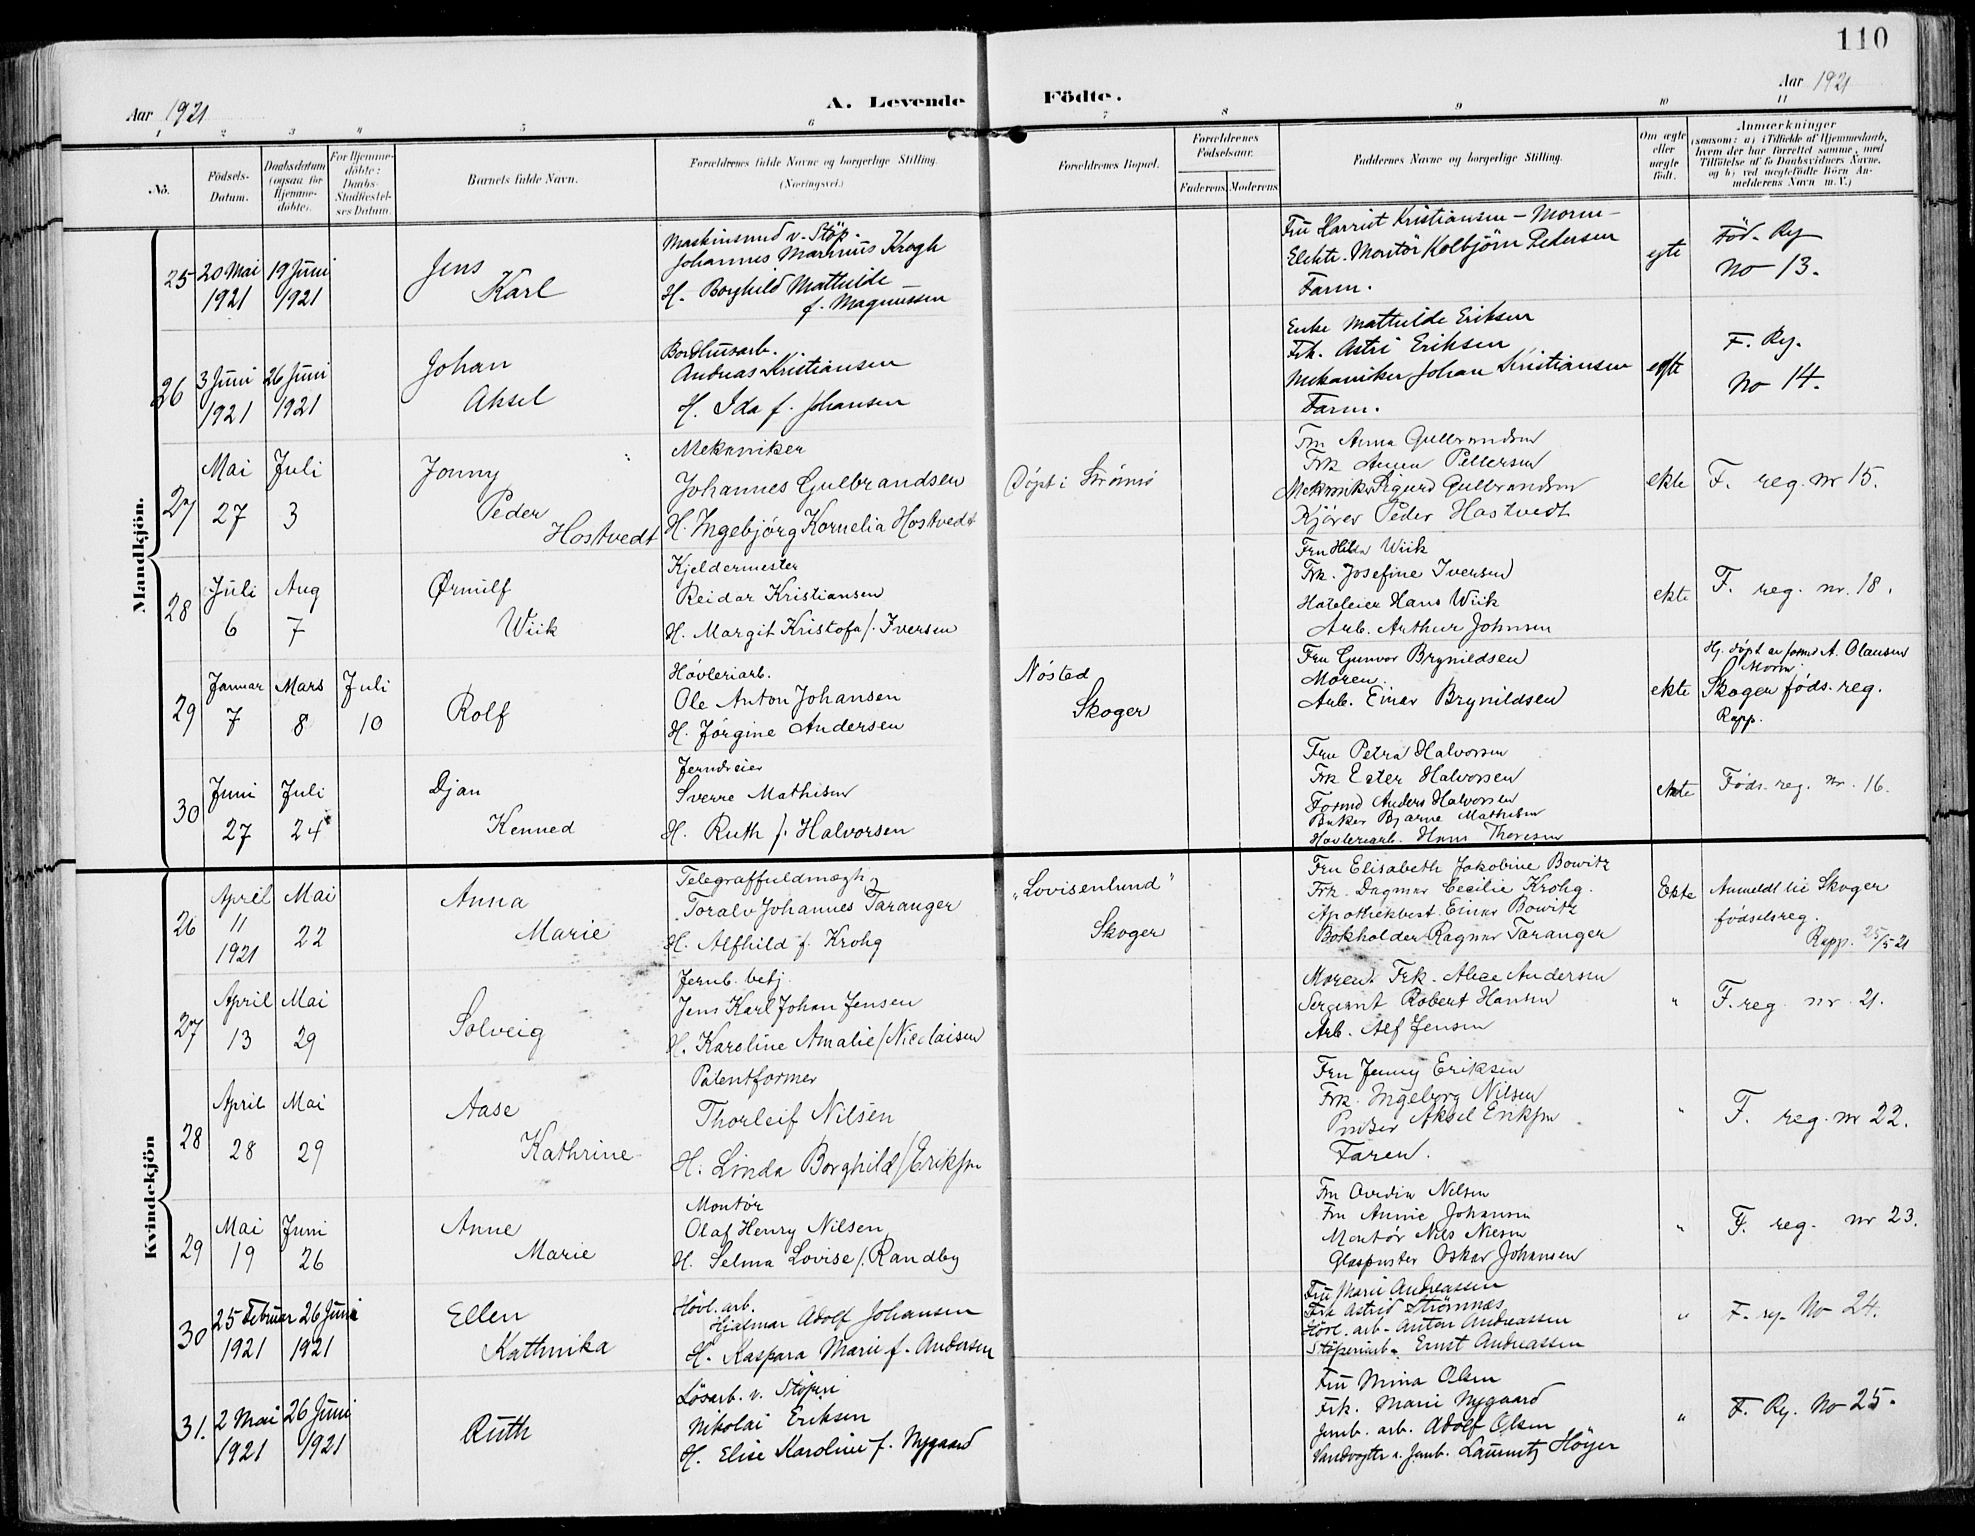 110
Aar 1921
A. Levende Födte.
Aar 1921
1 2 3 4 5 6 7 8 9 10 11
No.
Födsels-Datum.
Daabsdatum (ogsaa for Hjemme-döbte).
For Hjemme-döbte: Daabs-Stadfæstel-ses Datum.
Barnets fulde Navn.
Forældrenes fulde Navne og borgerlige Stilling.
(Næringsvei.)
Forældrenes Bopæl.
Forældrenes Födselsaar.
Faderens. Moderens.
Faddernes Navne og borgerlige Stilling.
Om ægte eller uægte födt.
Anmærkninger
(saasom: a) i Tilfælde af Hjemmedaab, hvem der har forrettet samme, med Tilföielse af to Daabsvidners Navne, og b) ved uægtefödte Börn An-melderens Navn m. V.)
Mandkjön.
25
20 Mai 1921
19 Juni 1921
Jens
Karl
Maskinsmed v. Støp.
Johannes Marinius Krogh
H. Borghild Mathilde
f. Magnussen
Fru Harriet Kristiansen – Moren –
Elektr. Montör Kolbjörn Pedersen
Faren.
egte
Föd. Rg
No 13.
26
3 Juni 1921
26 Juni 1921
Johan
Aksel
Bordhusarb.
Andreas Kristiansen
H. Ida f. Johansen
Enke Mathilde Eriksen
Frk. Astri Eriksen
Mekaniker Johan Kristiansen
Faren.
egte
F. Rg.
No 14.
27
Mai 27
Juli 3
Jonny
Peder
Hostvedt
Mekaniker
Johannes Gulbrandsen
H. Ingebjørg Kornelia Hostvedt
Døpt i Strømsø
Fru Anna Gulbrandsen
Frk Anna Pettersen
Mekaniker Sigurd Gulbrandsen
Kjører Peder Hostvedt
ekte
F. reg. nr 15.
28
Juli 6
Aug 7
Ørnulf
Wiik
Kjeldermester
Reidar Kristiansen
H. Margit Kristofa f. Iversen
Fru Hilda Wiik
Frk. Josefine Iversen
Hoteleier Hans Wiik
Arb. Arthur Johnsen
ekte
F. reg. nr. 18.
29
Januar 7
Mars 8
Juli 10
Rolf
Høvleriarb.
Ole Anton Johansen
H. Jørgine Andersen
Nøsted
Skoger
Fru Gunvor Brynildsen
Moren.
Arb. Einar Brynildsen
ekte
Hj. døpt av formd A. Olausen
Moren
Skoger føds. reg.
Rapp.
30
Juni 27
Juli 24
Djan
Kenned
Jerndreier
Sverre Mathisen
H. Ruth f. Halvorsen
Fru Petra Halvorsen
Frk Ester Halvorsen
Formd Anders Halvorsen
Baker Bjarne Mathisen
Høvleriarb. Hans Thoresen
ekte
Føds. reg. nr. 16.
Kvindekjön
26
April 11 1921
Mai 22
Anna
Marie
Telegraffuldmægt.
Toralv Johannes Taranger
H. Alfhild f. Krohg
„Lovisenlund"
Skoger
Fru Elisabeth Jakobine Bowitz
Frk. Dagmar Cecilie Krohg.
Apothekbest. Einar Bowitz
Bokholder Ragnar Taranger
Ekte
Anmeldt til Skoger
fødselsreg.
Rapp. 25/5 21
27
April 13
Mai 29
Solveig
Jernb. betj.
Jens Karl Johan Jensen
H. Karoline Amalie f Nicolaisen
Moren. Frk. Alice Andersen
Sergeant Robert Hansen
Arb. Alf Jensen
"
F. reg. nr 21.
28
April 28
Mai 29
Aase
Kathrine
Patentformer
Thorleif Nilsen
H. Linda Borghild f Eriksen
Fru Jenny Eriksen
Frk. Ingeborg Nilsen
Aksel Eriksen
Faren.
"
F. reg. nr 22.
29
Mai 19
Juni 26
Anne
Marie
Montør
Olaf Henry Nilsen
H. Selma Lovise f. Randby
Fru Ovedia Nilsen
Fru Annie Johansen
Montør Nils Nilsen
Glaspuster Oskar Johansen
"
F. reg. nr 23.
30
25 Februar 1921
26 Juni 1921
Ellen
Kathinka
Høvl. arb.
Hjalmar Adolf Johansen
H. Kaspara Marie f. Andersen
Fru Marie Andreassen
Frk Astrid Strömnæs
Hövl. arb. Anton Andreassen
Støperiarb. Ernst Andreassen
"
F. rg. No 24.
31.
2 Mai 1921
26 Juni 1921
Ruth
Løsarb. v. Støperi
Nikolai Eriksen
H. Elise Karoline f. Nygaard
Fru Mina Olsen
Frk. Marie Nygaard
Jernb. arb. Adolf Olsen
Vandvogter v. Jernb. Lauritz Höyer
"
F. Rg. No 25.